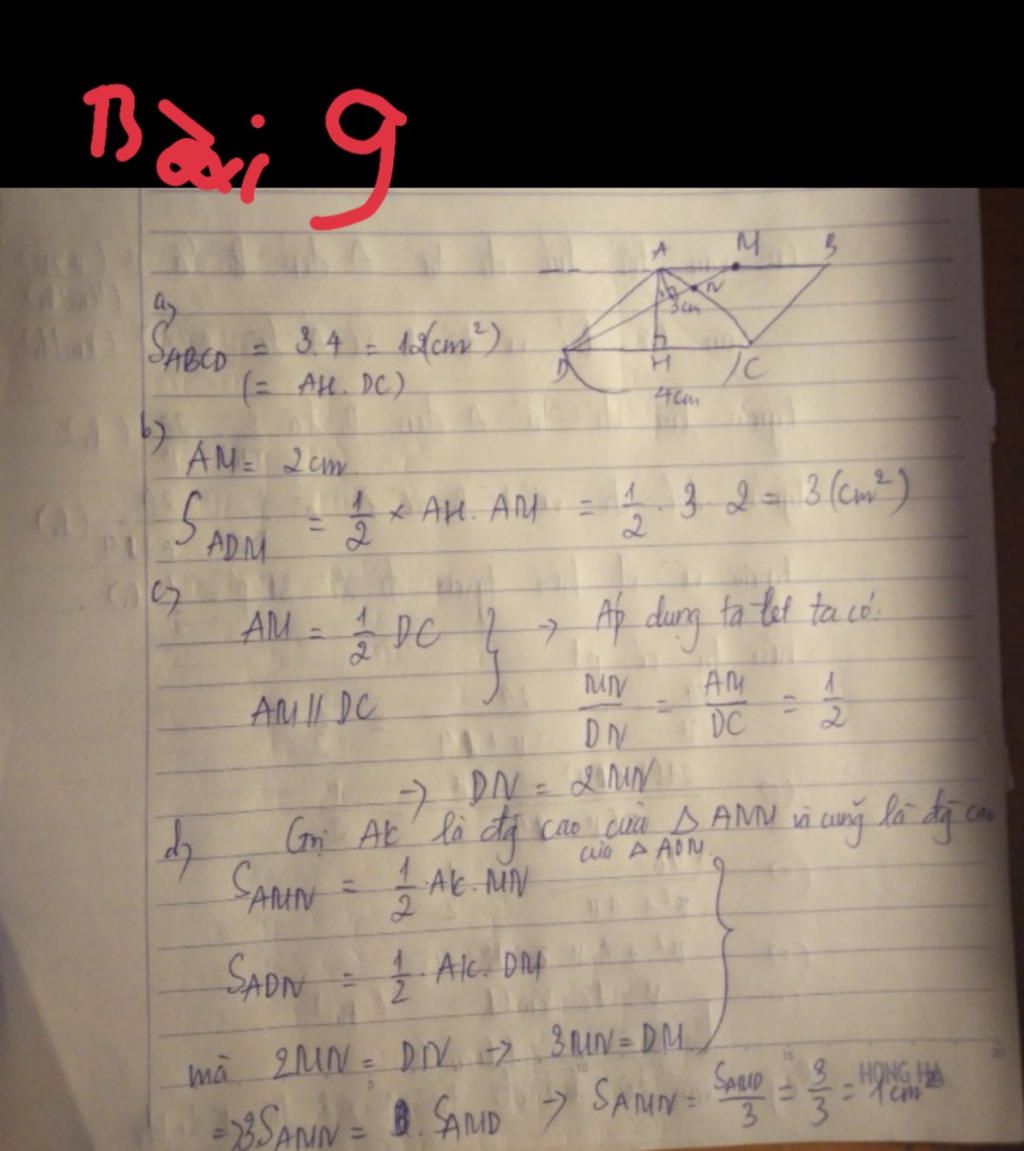 Bài 9
A M B
N
3cm
D H C
4cm
a)
S_ABCD = 3.4 = 12(cm²)
(= AH.DC)
b)
AM = 2cm.
S_ADM = 1/2 × AH.AM = 1/2 . 3 . 2 = 3(cm²)
c)
AM = 1/2 DC } → Áp dụng ta let ta có:
AM // DC
MN/DN = AM/DC = 1/2
→ DN = 2MN
d) Gọi AK là đg cao của △ AMN và cũng là đg cao
của △ ADM.
S_AMN = 1/2 . AK.MN
S_ADN = 1/2 . AK.DM
mà 2MN = DN → 3MN = DM
=> 3S_AMN = S_AMD → S_AMN = S_AMD/3 = 3/3 = 1cm²
HONG HA